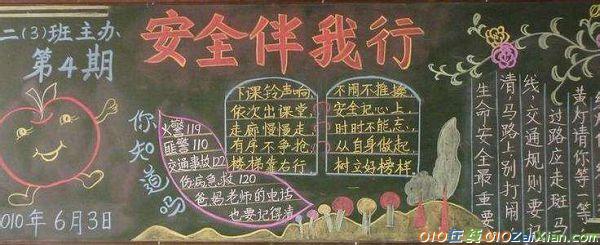 二(3)班主办
第4期
010年6月3日
安全伴我行
你知道吗
火警119
匪警110
交通事故122
伤病急救120
爸妈老师的电话
也要记得清
下课铃声响
依次出课堂,
走廊慢慢走
有序不争抢,
楼梯靠右行
不闹不推搡
安全记心上,
时时不能忘,
从自身做起,
树立好榜样
黄灯请你等一等
过路应走斑马
线,交通规则要
清,马路上别打闹
生命安全最重要
010在线010zaixian.com